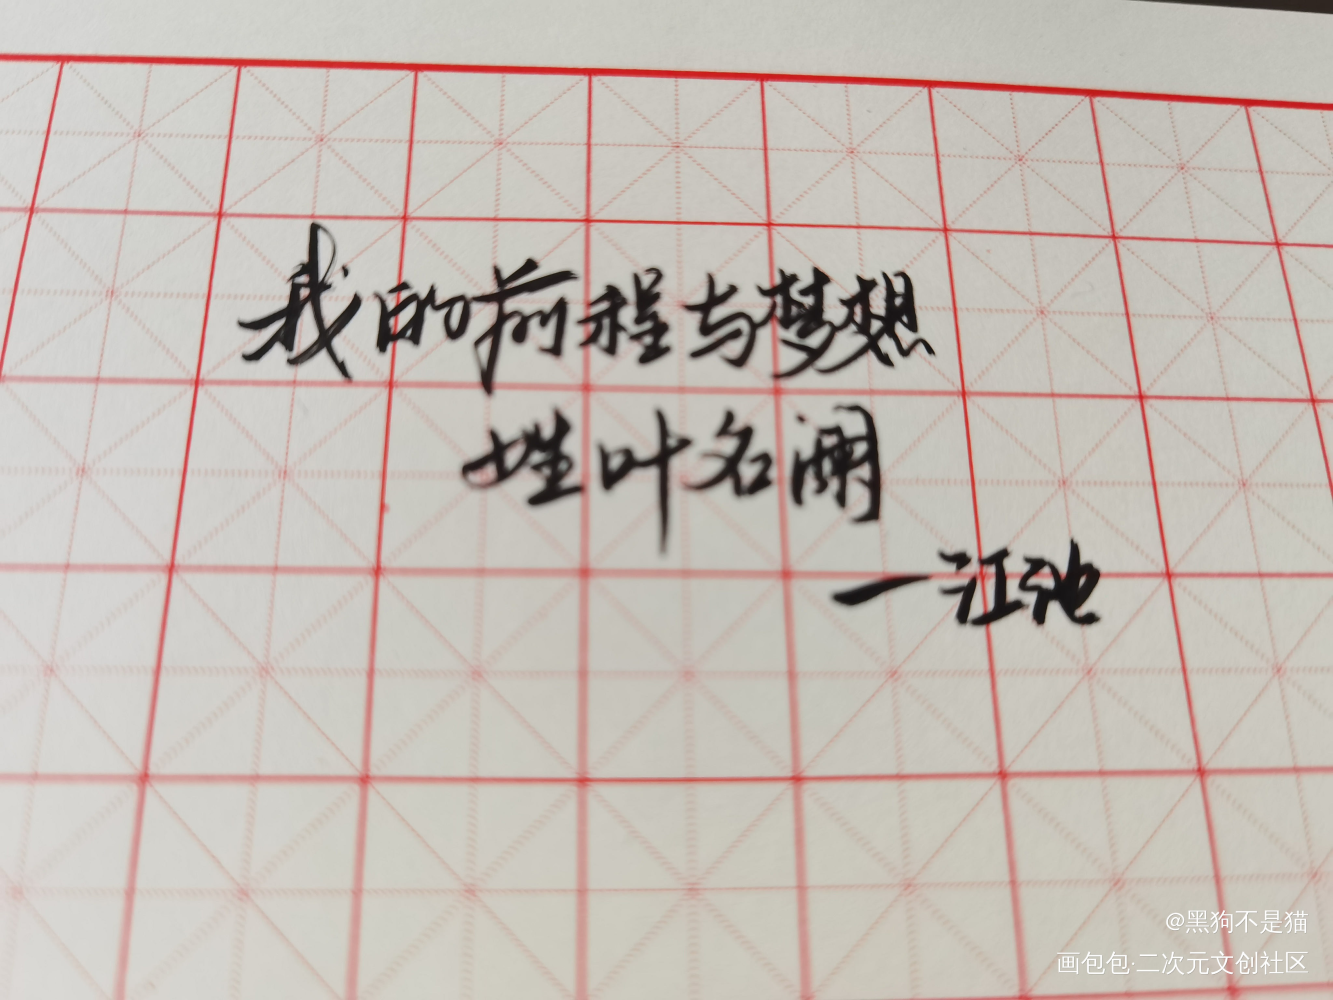 我的前程与梦想
姓叶名澜
一江池
@黑狗不是猫
画包包·二次元文创社区